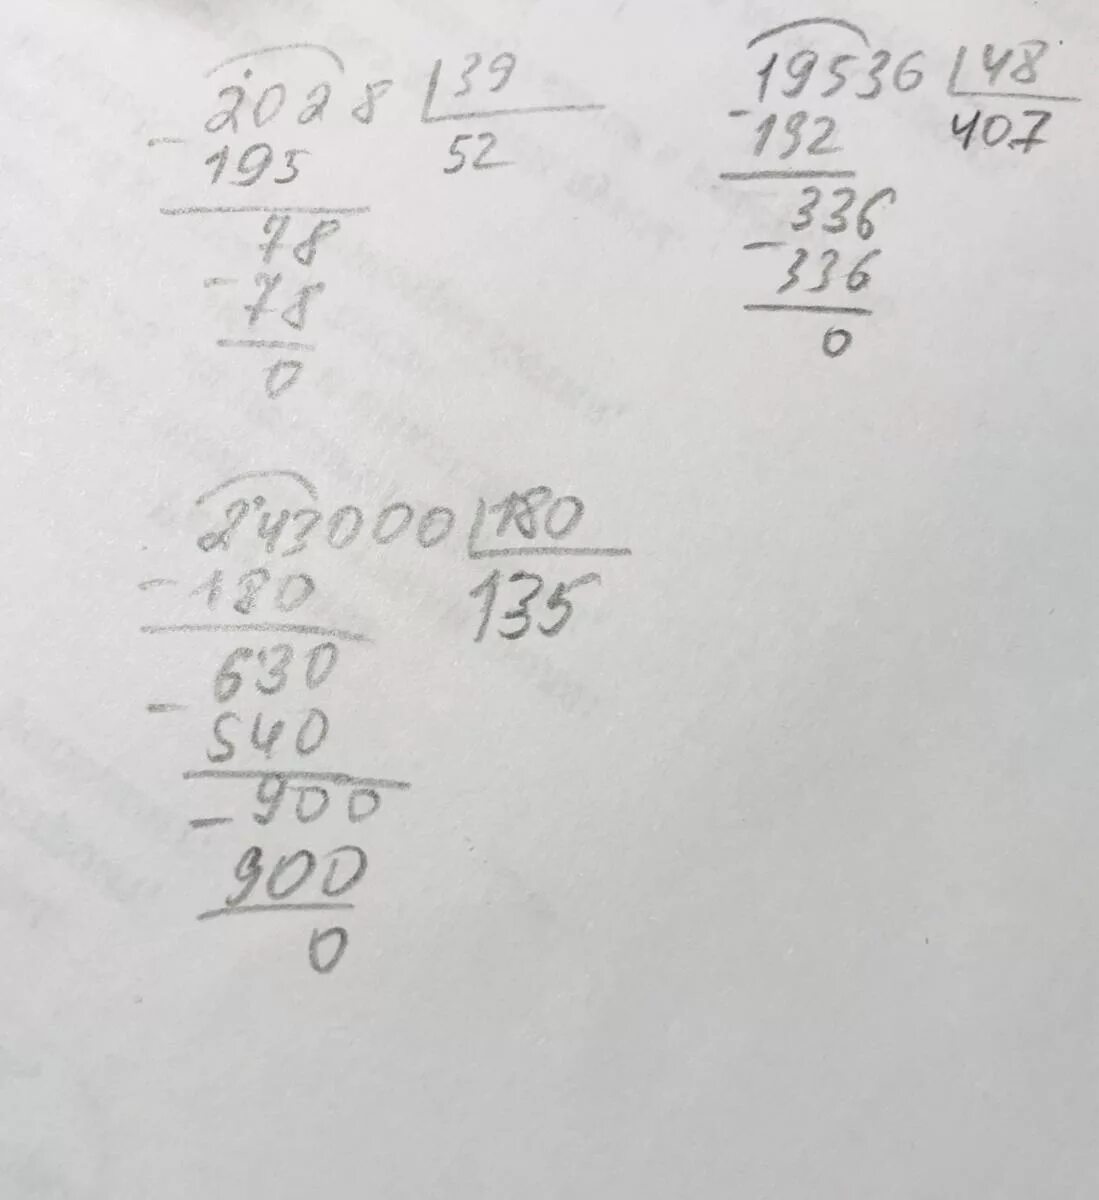 2028 39
- 195 52
78
- 78
0
19536 48
- 192 407
336
- 336
0
243000 180
- 180 135
630
- 540
900
- 900
0